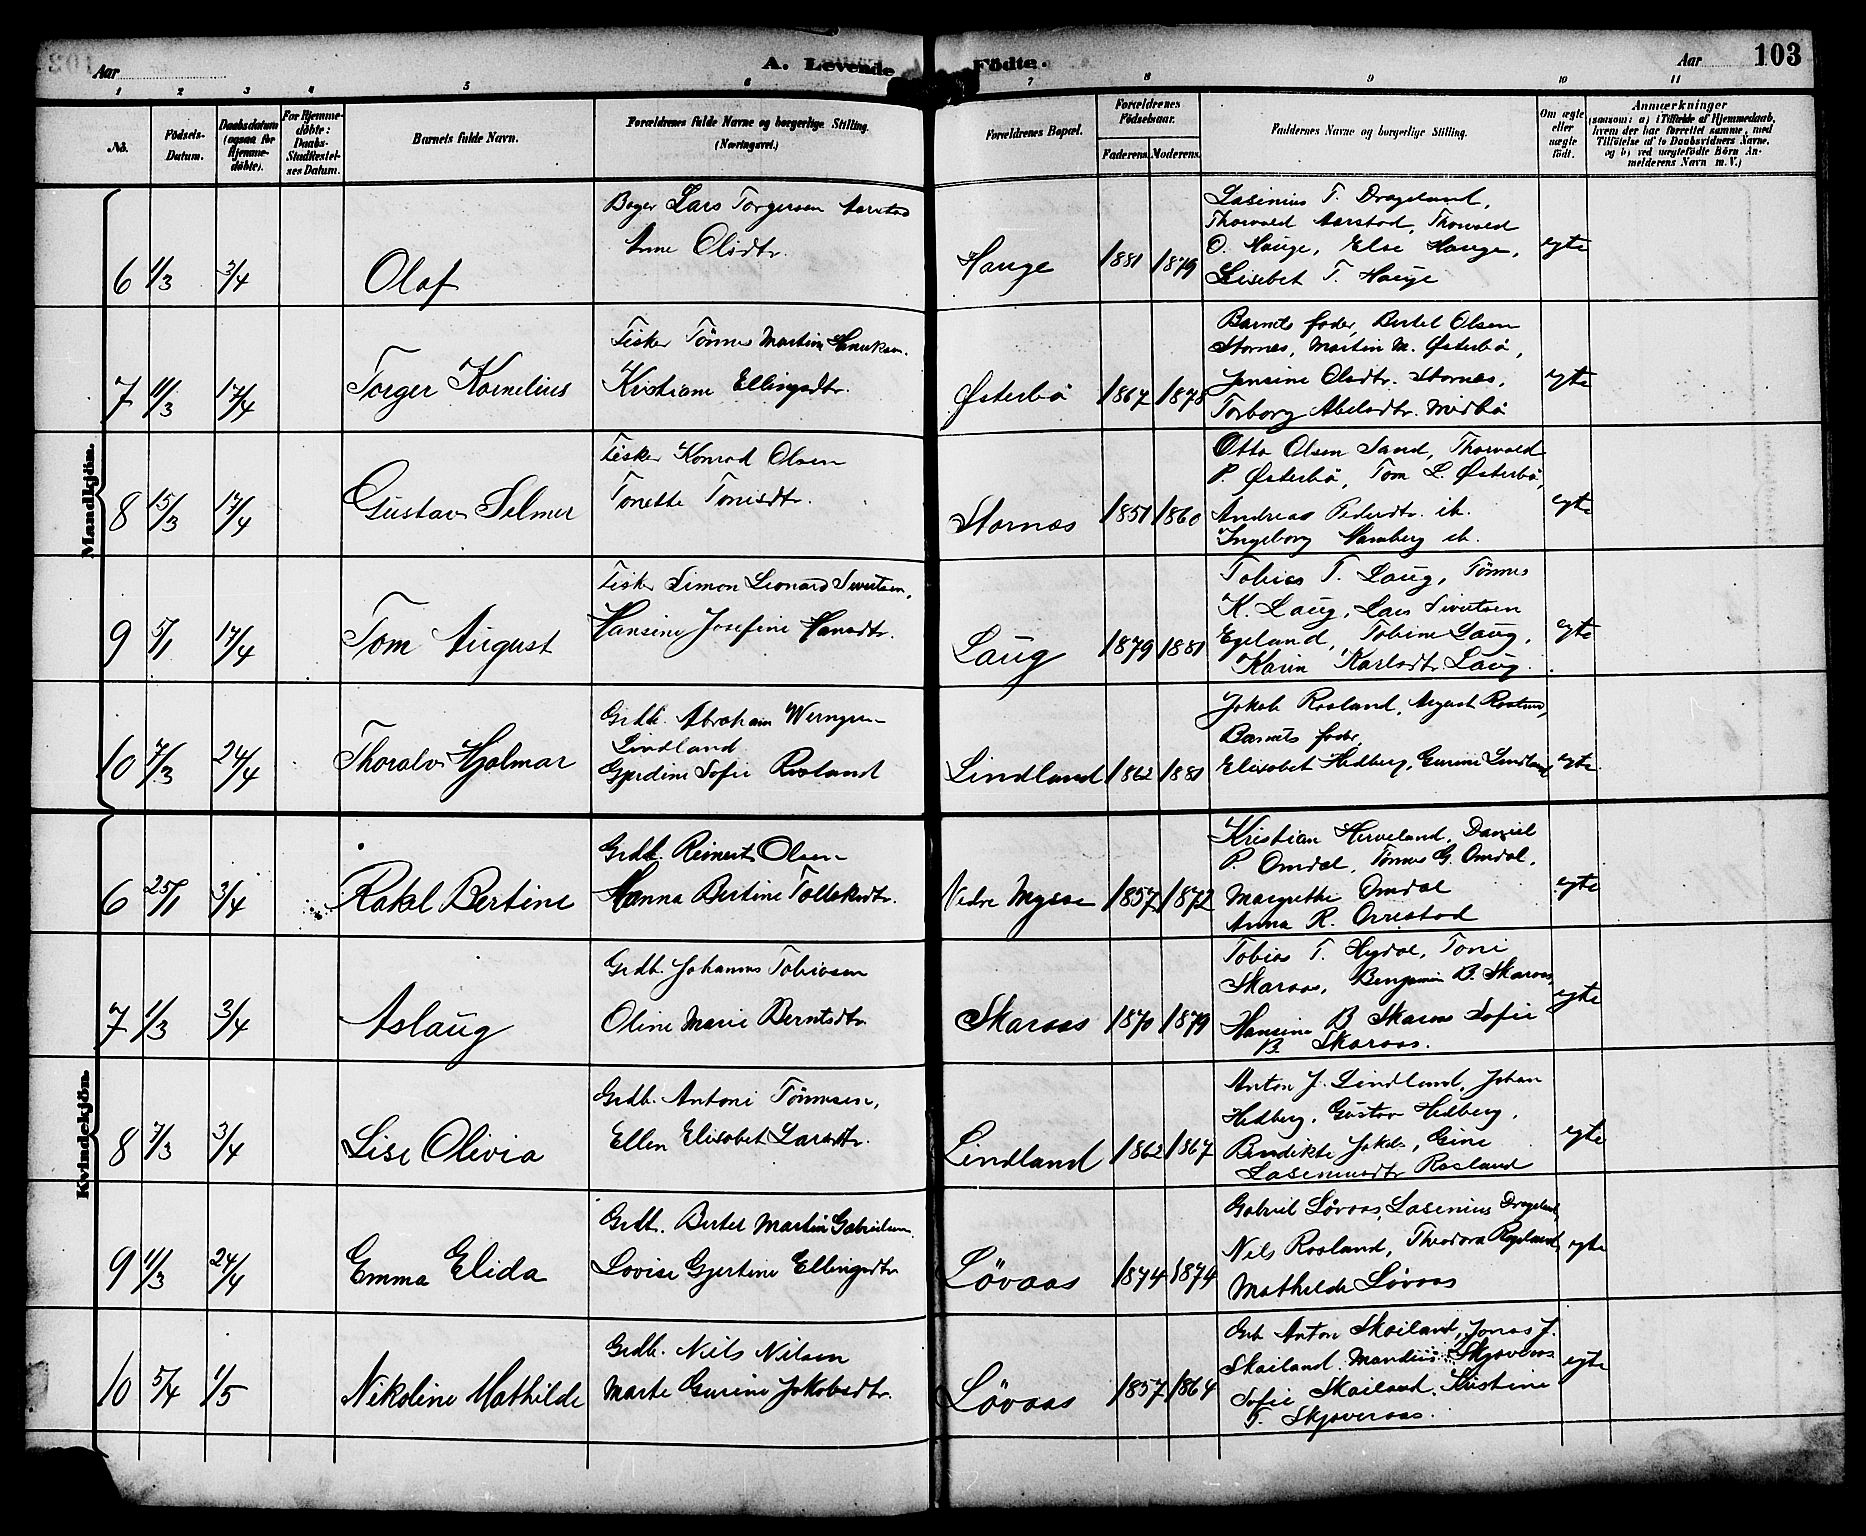 Aar
A. Levende Födte.
Aar
103
1 2 3 4 5 6 7 8 9 10 11
No.
Födsels-Datum.
Daabsdatum (ogsaa for Hjemme-döbte).
For Hjemme-döbte: Daabs-Stadfæstel-ses Datum.
Barnets fulde Navn.
Forældrenes fulde Navne og borgerlige Stilling. (Næringsvei.)
Forældrenes Bopæl.
Forældrenes Födselsaar.
Faderens. Moderens.
Faddernes Navne og borgerlige Stilling.
Om ægte eller uægte födt.
Anmærkninger
(saasom: a) i Tilfælde af Hjemmedaab, hvem der har forrettet samme, med Tilföielse af to Daabsvidners Navne, og b) ved uægtefödte Börn An-melderens Navn m. V.)
Mandkjön.
6 1/3 3/4 Olaf
Bager Lars Torgersen Aarstad
Anne Olsdtr.
Hauge 1881 1879
Lasinius T. Drageland,
Thorvald Aarstad, Thorvald
O. Hauge, Else Hauge,
Lisebet T. Hauge
egte
7 11/3 17/4 Torger Kornelius
Fisker Tönnes Martin Henriksen.
Kristiane Ellingsdtr.
Østerbö 1867 1878
Barnets fader, Bertel Olsen
Stornes, Martin M. Østerbö,
Jensine Olsdtr. Stornes,
Torborg Abelsdtr. Midbö
egte
8 15/3 17/4 Gustav Selmer
Fisker Konrad Olsen
Tonette Tonisdtr.
Stornes 1851 1860
Otto Olsen Sand, Thorvald
P. Østerbö, Tom L. Østerbö,
Andrea Pedersdtr. ib.
Ingeborg Hamberg ib.
egte
9 5/1 17/4 Tom August
Fisker Simon Leonard Sivertsen,
Hansine Josefine Hansdtr.
Laug 1879 1881
Tobias T. Laug, Tönnes
K. Laug, Lars Sivertsen
Egeland, Tobine Laug,
Karin Karlsdtr. Laug.
egte
10 7/3 24/4 Thoralv Hjalmar
Grdb. Abraham
Lindland
Gjerdine Sofie Rosland
Lindland 1862 1881
Jakob Rosland, August Rosland,
Barnets fader,
Elisabet Hedberg, Gurine Lindland
egte
Kvindekjön.
6 25/1 3/4 Rakel Bertine
Grdb. Reinert Olsen
Hanna Bertine Tollaksdtr.
Nedre Mysse 1857 1872
Kristian Herveland, Daniel
P. Omdal, Tönnes G. Omdal,
Margrethe Omdal
Anna R. Orrestad
egte
7 1/3 3/4 Aslaug
Grdb. Johannes Tobiasen
Oline Marie Berntsdtr.
Skaraas 1870 1879
Tobias T. Hydal, Toni
Skaraas, Benjamin B. Skaraas,
Hansine B Skaraas Sofie
B. Skaraas.
egte
8 7/3 3/4 Lise Olivia
Grdb. Antoni Tönnesen,
Ellen Elisabet Larsdtr.
Lindland 1862 1867
Anton J. Lindland, Johan
Hedberg, Gustav Hedberg,
Bendikte Jakobs., Gine
Laseniusdtr Rosland
egte
9 11/3 24/4 Emma Elida
Grdb. Bertel Martin Gabrielsen
Lovise Gjertine Ellingsdtr
Løvaas 1874 1874
Gabriel Løvaas, Lasenius Drageland,
Nils Rosland, Theodora Rosland,
Mathilde Løvaas
egte
10 5/4 1/5 Nikoline Mathilde
Grdb. Nils Nilsen
Marte Gurine Jakobsdtr.
Løvaas 1857 1864
Grb Anton Skailand, Jonas J.
Skailand. Mandius Skjoveraas
Sofie Skailand, Kristine
T. Skjoveraas.
egte